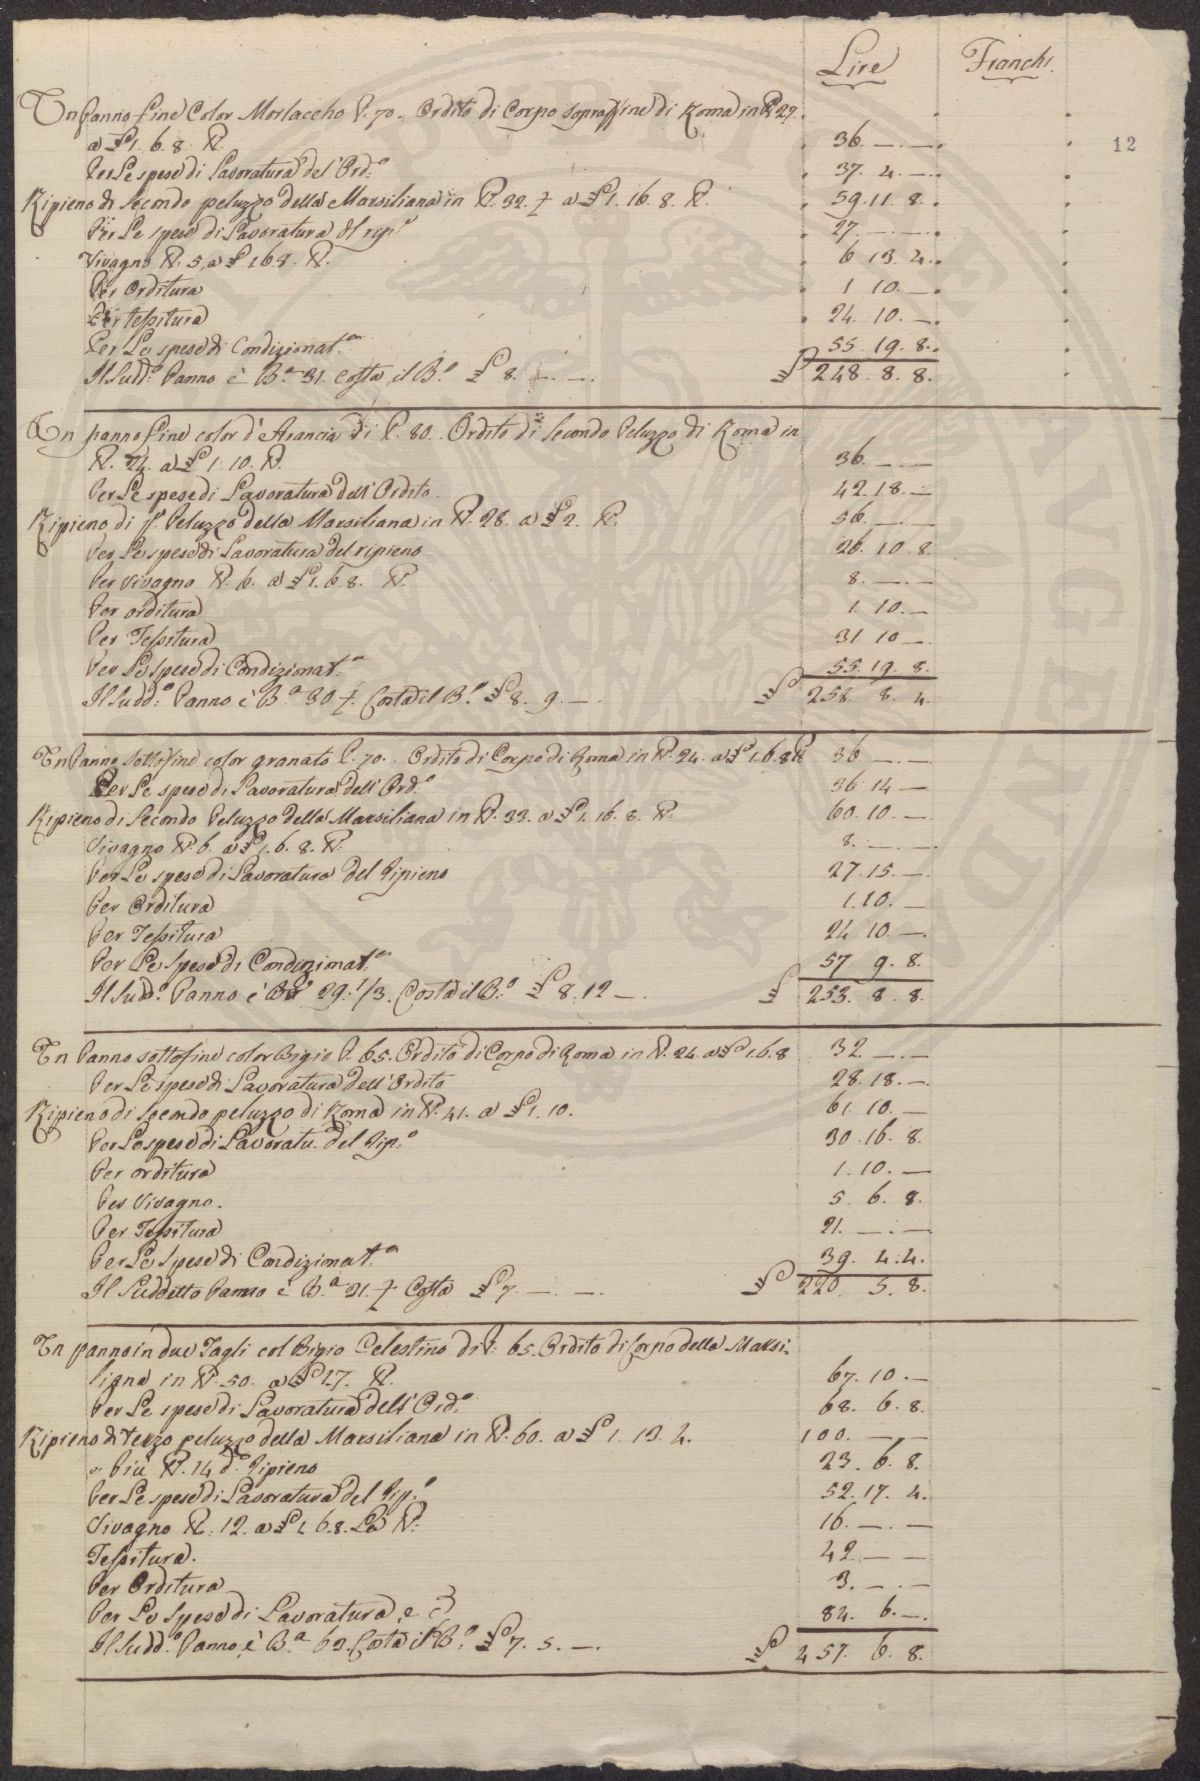 Lire Franchi
12
Un panno fine Color Morlaccho P. 70. Ordito di Corpo sopraffine di Roma in lb 27.
a £ 1. 6. 8. lb 36. — . —
Per Le spese di Lavoratura del' Ord.o 37. 4. —
Ripieno di Secondo peluzzo della Marsiliana in lb. 32. ½ a £ 1. 16. 8. lb. 59. 11. 8.
Per Le spese di Lavoratura del rip.o 27. — . —
Vivagno lb. 5. a £ 1 6 8. lb. 6 13. 4.
Per Orditura 1 10. —
Per tessitura 24. 10. —
Per Le spese di Condizionat.a 55. 19. 8.
Il Sudd.o Panno è B.a 31. Costa il B.o £ 8. — . — £ 248. 8. 8.
Un panno fine color d'Arancia di P. 80. Ordito di Secondo Peluzzo di Roma in
lb. 24. a £ 1. 10. lb. 36. — . —
Per Le spese di Lavoratura dell' Ordito. 42. 18. —
Ripieno di p.o Peluzzo della Marsiliana in lb. 28. a £ 2. lb. 56. — . —
Per Le spese di Lavoratura del ripieno 26. 10. 8.
Per vivagno lb. 6. a £ 1. 6. 8. lb. 8. — . —
Per orditura 1. 10. —
Per Tessitura 31 10 —
Per Le Spese di Condizionat.a 55. 19. 8.
Il Sudd.o Panno è B.a 30 ½. Costa il B.o £ 8. 9. — £ 258. 8. 4.
Un Panno sottofine color granato P. 70. Ordito di Corpo di Roma in lb. 24. a £ 1. 6. 8 lb 36. — . —
Per Le spese di Lavoratura dell' Ord.o 36 14 —
Ripieno di Secondo Peluzzo della Marsiliana in lb. 33. a £ 1. 16. 8. lb. 60. 10. —
Vivagno lb. 6. a £ 1. 6. 8. lb. 8. — . —
Per Le spese di Lavoratura del Ripieno 27. 15. —
Per Orditura 1. 10. —
Per Tessitura 24 10. —
Per Le Spese di Condizionat.a 57 9. 8.
Il Sudd.o Panno è B.a 29. 1/3. Costa il B.o £ 8. 12 — £ 253. 8. 8.
Un Panno sottofine color Bigio P. 65. Ordito di Corpo di Roma in lb. 24. a £ 1. 6. 8 32. — . —
Per Le spese di Lavoratura dell' Ordito 28. 18. —
Ripieno di Secondo peluzzo di Roma in lb. 41. a £ 1. 10. 61. 10. —
Per Le spese di Lavoratu. del Rip.o 30. 16. 8.
Per orditura 1. 10. —
Per Vivagno. 5. 6. 8.
Per Tessitura 21. — . —
Per Le Spese di Condizionat.a 39. 4. 4.
Il Suddetto Panno è B.a 31. ½ Costa £ 7. — . — £ 220. 5. 8.
Un panno in due Tagli col Bigio Celestino di P. 65. Ordito di Corpo della Marsi-
liana in lb. 50. a £ 1. 7. lb. 67. 10. —
Per Le spese di Lavoratura dell' Ord.o 68. 6. 8.
Ripieno di terzo peluzzo della Marsiliana in lb. 60. a £ 1. 13. 4. 100. — . —
Più lb. 14 d.o Ripieno 23. 6. 8.
Per Le spese di Lavoratura del Rip.o 52. 17. 4.
Vivagno lb. 12. a £ 1. 6. 8. La lb. 16. — . —
Tessitura. 42. — . —
Per Orditura 3. — . —
Per Le Spese di Lavoratura, e C. 84. 6. —
Il Sudd.o Panno, è B.a 63. Costa il B.o £ 7. 5. — £ 457. 6. 8.